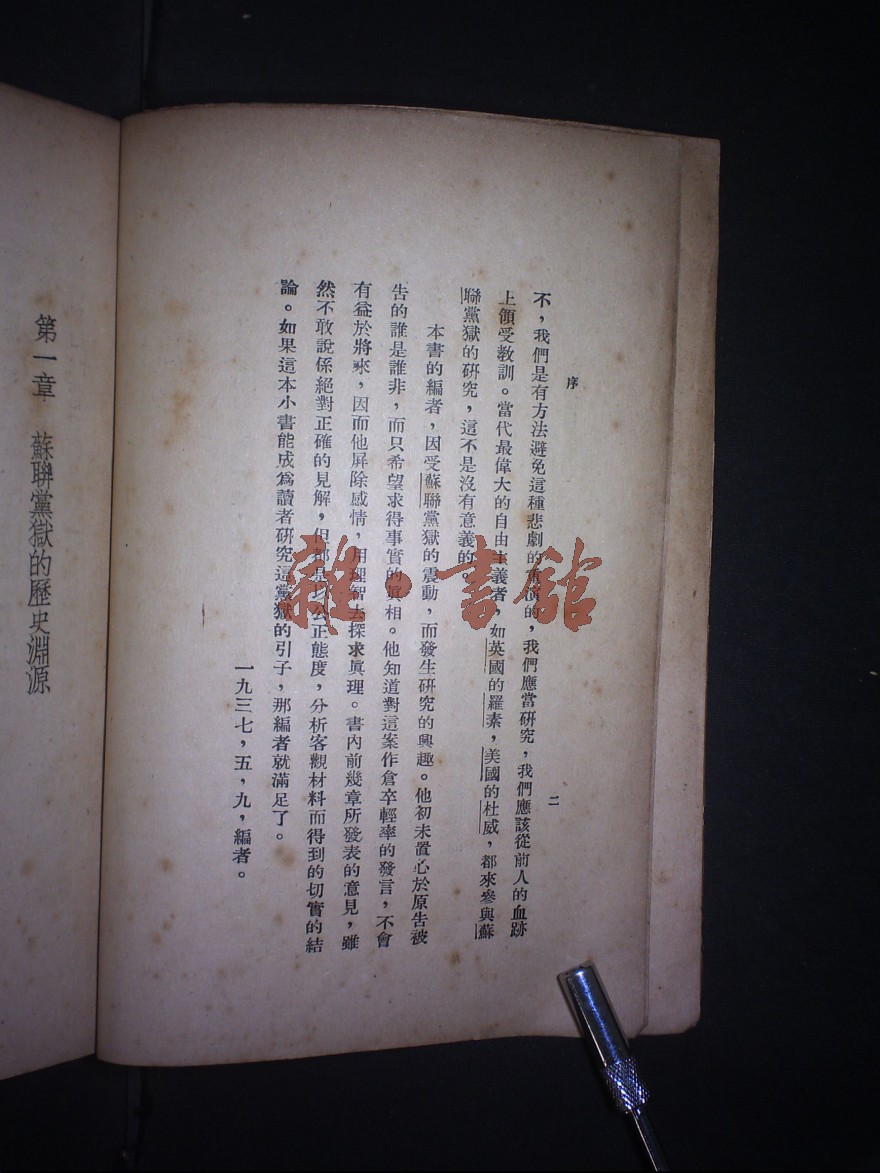 序
二
不，我們是有方法避免這種悲劇的重演的，我們應當研究，我們應該從前人的血跡
上領受教訓。當代最偉大的自由主義者，如英國的羅素，美國的杜威，都來參與蘇
聯黨獄的研究，這不是沒有意義的。
本書的編者，因受蘇聯黨獄的震動，而發生研究的興趣。他初未置心於原告被
告的誰是誰非，而只希望求得事實的眞相。他知道對這案作倉卒輕率的發言，不會
有益於將來，因而他屏除感情，用理智去探求眞理。書內前幾章所發表的意見，雖
然不敢說係絕對正確的見解，但都是以公正態度，分析客觀材料而得到的切實的結
論。如果這本小書能成爲讀者研究這黨獄的引子，那編者就滿足了。
一九三七，五，九，編者。
第一章　蘇聯黨獄的歷史淵源
雜·書館